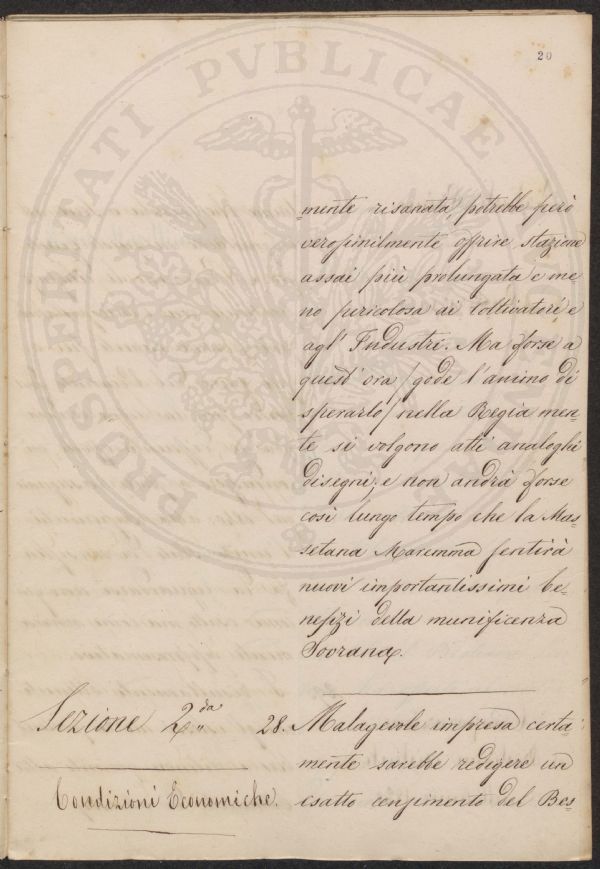 20
PROSPERITATI PVBLICAE
=mente risanata, potrebbe però
verosimilmente offrire stazione
assai più prolungata e me=
no pericolosa ai Coltivatori e
agl' Industri. Ma forse a
quest' ora /gode l'animo di
sperarlo/ nella Regia men=
te si volgono atti analoghi
disegni; e non andrà forse
così lungo tempo che la Mas=
setana Maremma sentirà
nuovi importantissimi be=
nefizi della munificenza
Sovrana.
Sezione 2.da
Condizioni Economiche.
28. Malagevole impresa certa=
mente sarebbe redigere un
esatto censimento del Bes=